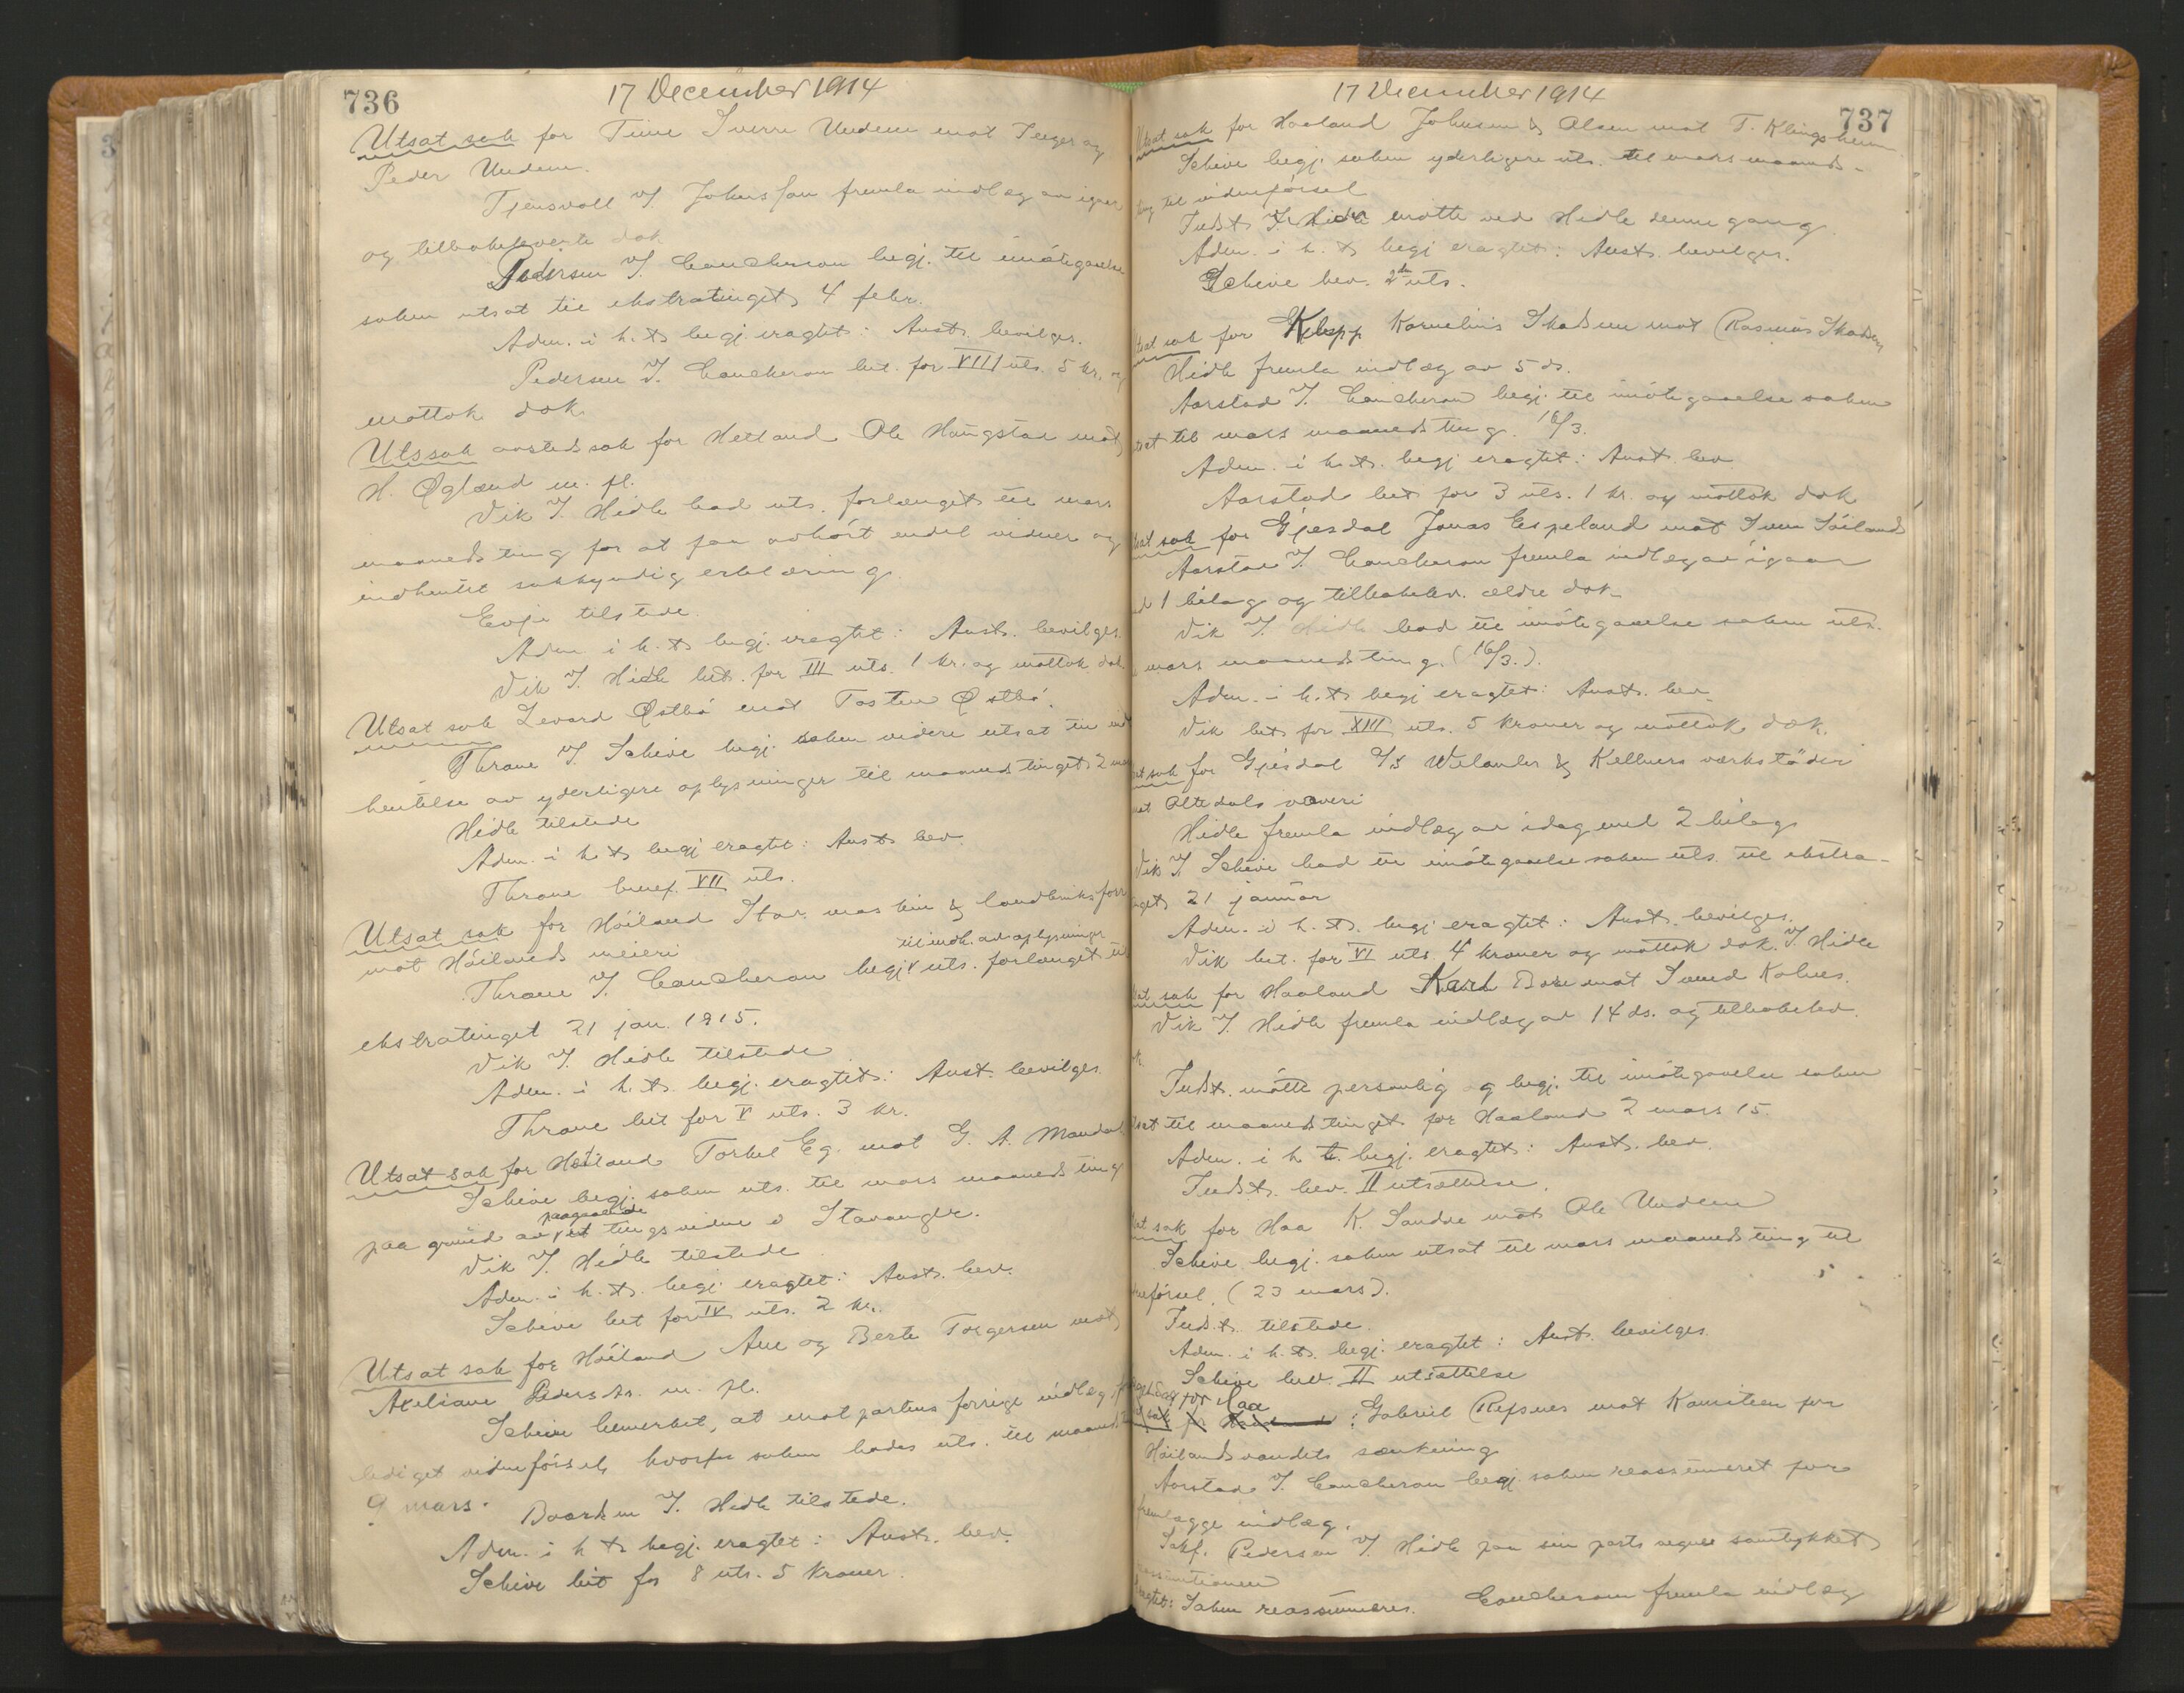 736
17 December 1914
Utsat sak for Time Sverre Undem mot Inger og
Peder Undem.
Tjensvoll v/ Johnsson fremla indlæg av igaar
og tilbakeleverte dok
Pedersen v/ Caucheron begj. til imøtegaaelse
saken utsat til ekstratinget 4 febr.
Adm. i h. t. begj. eragtet: Anst. bevilges.
Pedersen v/ Caucheron bet. for VIII uts. 5 kr. og
mottok dok
Uts sak avsteds sak for Hetland Ole Haugstad mot
H. Øgland m. fl.
Vik v/ Hidle bad uts. forlænget til mars
maanedsting for at faa avhørt endel vidner og
indhentet sakkyndig erklæring
Evje tilstede.
Adm i h. t. begj. eragtet: Anst. bevilges.
Vik v/ Hidle bet. for III uts. 1 kr. og mottok dok.
Utsat sak Levard Østbø mot Tosten Østbø.
Thrane v/ Scheive begj. saken videre utsat til ind
hentelse av yderligere oplysninger til maanedstinget 2 mars
Hidle tilstede
Adm. i h. t. begj eragtet: Anst bev.
Thrane benef. VII uts.
Utsat sak for Høiland Stav. maskin & landbruksforr
mot Høilands meieri
til indh. av oplysninger
Thrane v/ Caucheron begj uts. forlænget til
ekstratinget 21 jan. 1915.
Vik v/ Hidle tilstede
Adm. i h. t. begj. eragtet: Anst. bevilges
Thrane bet for V uts. 3 kr.
Utsat sak for Høiland Torkel Eg. mot G. A. Mandal
Scheive begj. saken uts. til mars maanedsting
paagaaende
paa grund av et tingsvidne i Stavanger.
Vik v/ Hidle tilstede
Adm. i h. t. begj. eragtet: Anst. bev.
Scheive bet for IV uts. 2 kr.
Utsat sak for Høiland Ane og Berte Torgersen mot
Axeliane Pedersdr. m. fl.
Scheive bemerket, at motpartens forrige indlæg
lediget vidneførsel, hvorfor saken bades uts. til maaneds
9 mars.
Baardsen v/ Hidle tilstede.
Adm. i h t. begj. eragtet: Anst. bev.
Scheive bet for 8 uts. 5 kroner.
737
17 December 1914
Utsat sak for Haaland Johnsen & Olsen mot T. Klingsheim
Scheive begj. saken yderligere uts. til mars maaneds-
ting til vidneførsel
Indst. møtte ved Hidle denne gang.
Adm. i h. t. begj eragtet: Anst. bevilges.
Scheive bev. 2den uts.
Utsat sak for Klepp Kornelius Skadsem mot Rasmus Skadsem
Hidle fremla indlæg av 5 ds.
Aarstad v/ Caucheron begj. til imøtegaaelse saken
utsat til mars maanedsting. 16/3.
Adm. i h. t. begj eragtet: Anst. bev
Aarstad bet for 3 uts. 1 kr. og mottok dok
Utsat sak for Gjesdal Jonas Espeland mot Søiland
Aarstad v/ Caucheron fremla indlæg av igaar
med 1 bilag og tilbakelev. ældre dok.
Vik v/ Hidle bad til imøtegaaelse saken uts.
mars maanedsting. (16/3.).
Adm. i h. t. begj eragtet: Anst. bev
Vik bet for XIII uts. 5 kroner og mottok dok.
sak for Gjesdal A/S Welander & Kellners værkstäder
mot Oltedals væveri
Hidle fremla indlæg av idag med 2 bilag
Vik v/ Scheive bad til imøtegaaelse saken uts. til ekstra-
tinget 21 januar
Adm. i h. t. begj eragtet: Anst. bevilges.
Vik bet. for VI uts 4 kroner og mottok dok. v/ Hidle
sak for Haaland Karl Bore mot Svend Kolnes.
Vik v/ Hidle fremla indlæg av 14 ds. og tilbakelev.
dok.
Indst. møtte personlig og begj. til imøtegaaelse saken
utsat til maanedstinget for Haaland 2 mars 15.
Adm. i h t. begj. eragtet: Anst. bev.
Indst. bev. II utsættelse.
sak for Haa K. Sandve mot Ole Undem
Scheive begj. saken utsat til mars maanedsting til
vidneførsel. (23 mars).
Indst. tilstede.
Adm. i h. t. begj. eragtet: Anst. bevilges
Scheive bev. II utsættelse
for Haa
: Gabriel Refsnes mot Komiteen for
Høilandsvandets sænkning
Aarstad v/ Caucheron begj. saken reassumeret for
fremlægge indlæg.
Sakf. Pedersen v/ Hidle paa sin parts vegne samtykket
reassumtionen
Eragtet: Saken reassumeres. Caucheron fremla indlæg